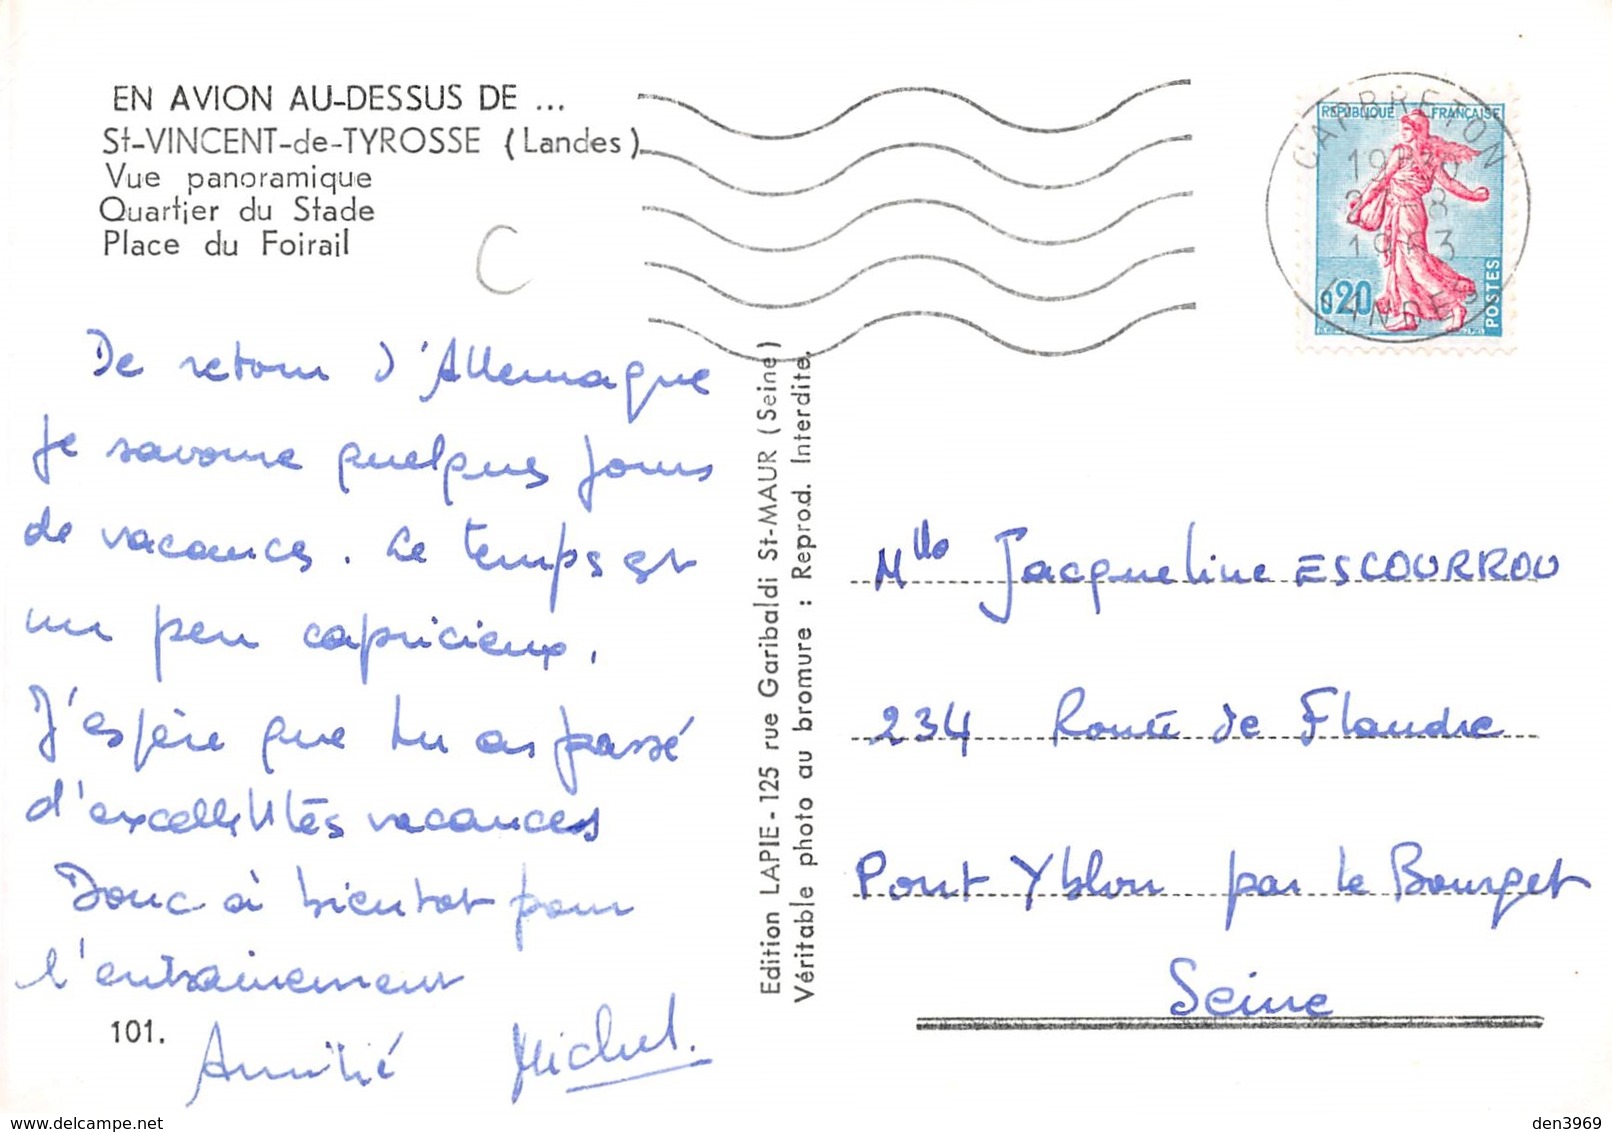 EN AVION AU-DESSUS DE ...
St-VINCENT-de-TYROSSE (Landes)
Vue panoramique
Quartier du Stade
Place du Foirail
C
De retour d'Allemagne
je savoure quelques jours
de vacances. Le temps est
un peu capricieux.
J'espère que tu as passé
d'excellentes vacances
Donc à bientot pour
l'entrainement
101.
Amitié Michel.
Edition LAPIE - 125 rue Garibaldi St-MAUR (Seine)
Véritable photo au bromure : Reprod. Interdite.
REPUBLIQUE FRANÇAISE
0,20
POSTES
CAPBRETON
8
1963
LANDES
Mlle Jacqueline ESCOURROU
234 Route de Flandre
Pont Yblon par le Bourget
Seine
delcampe.net
den3969